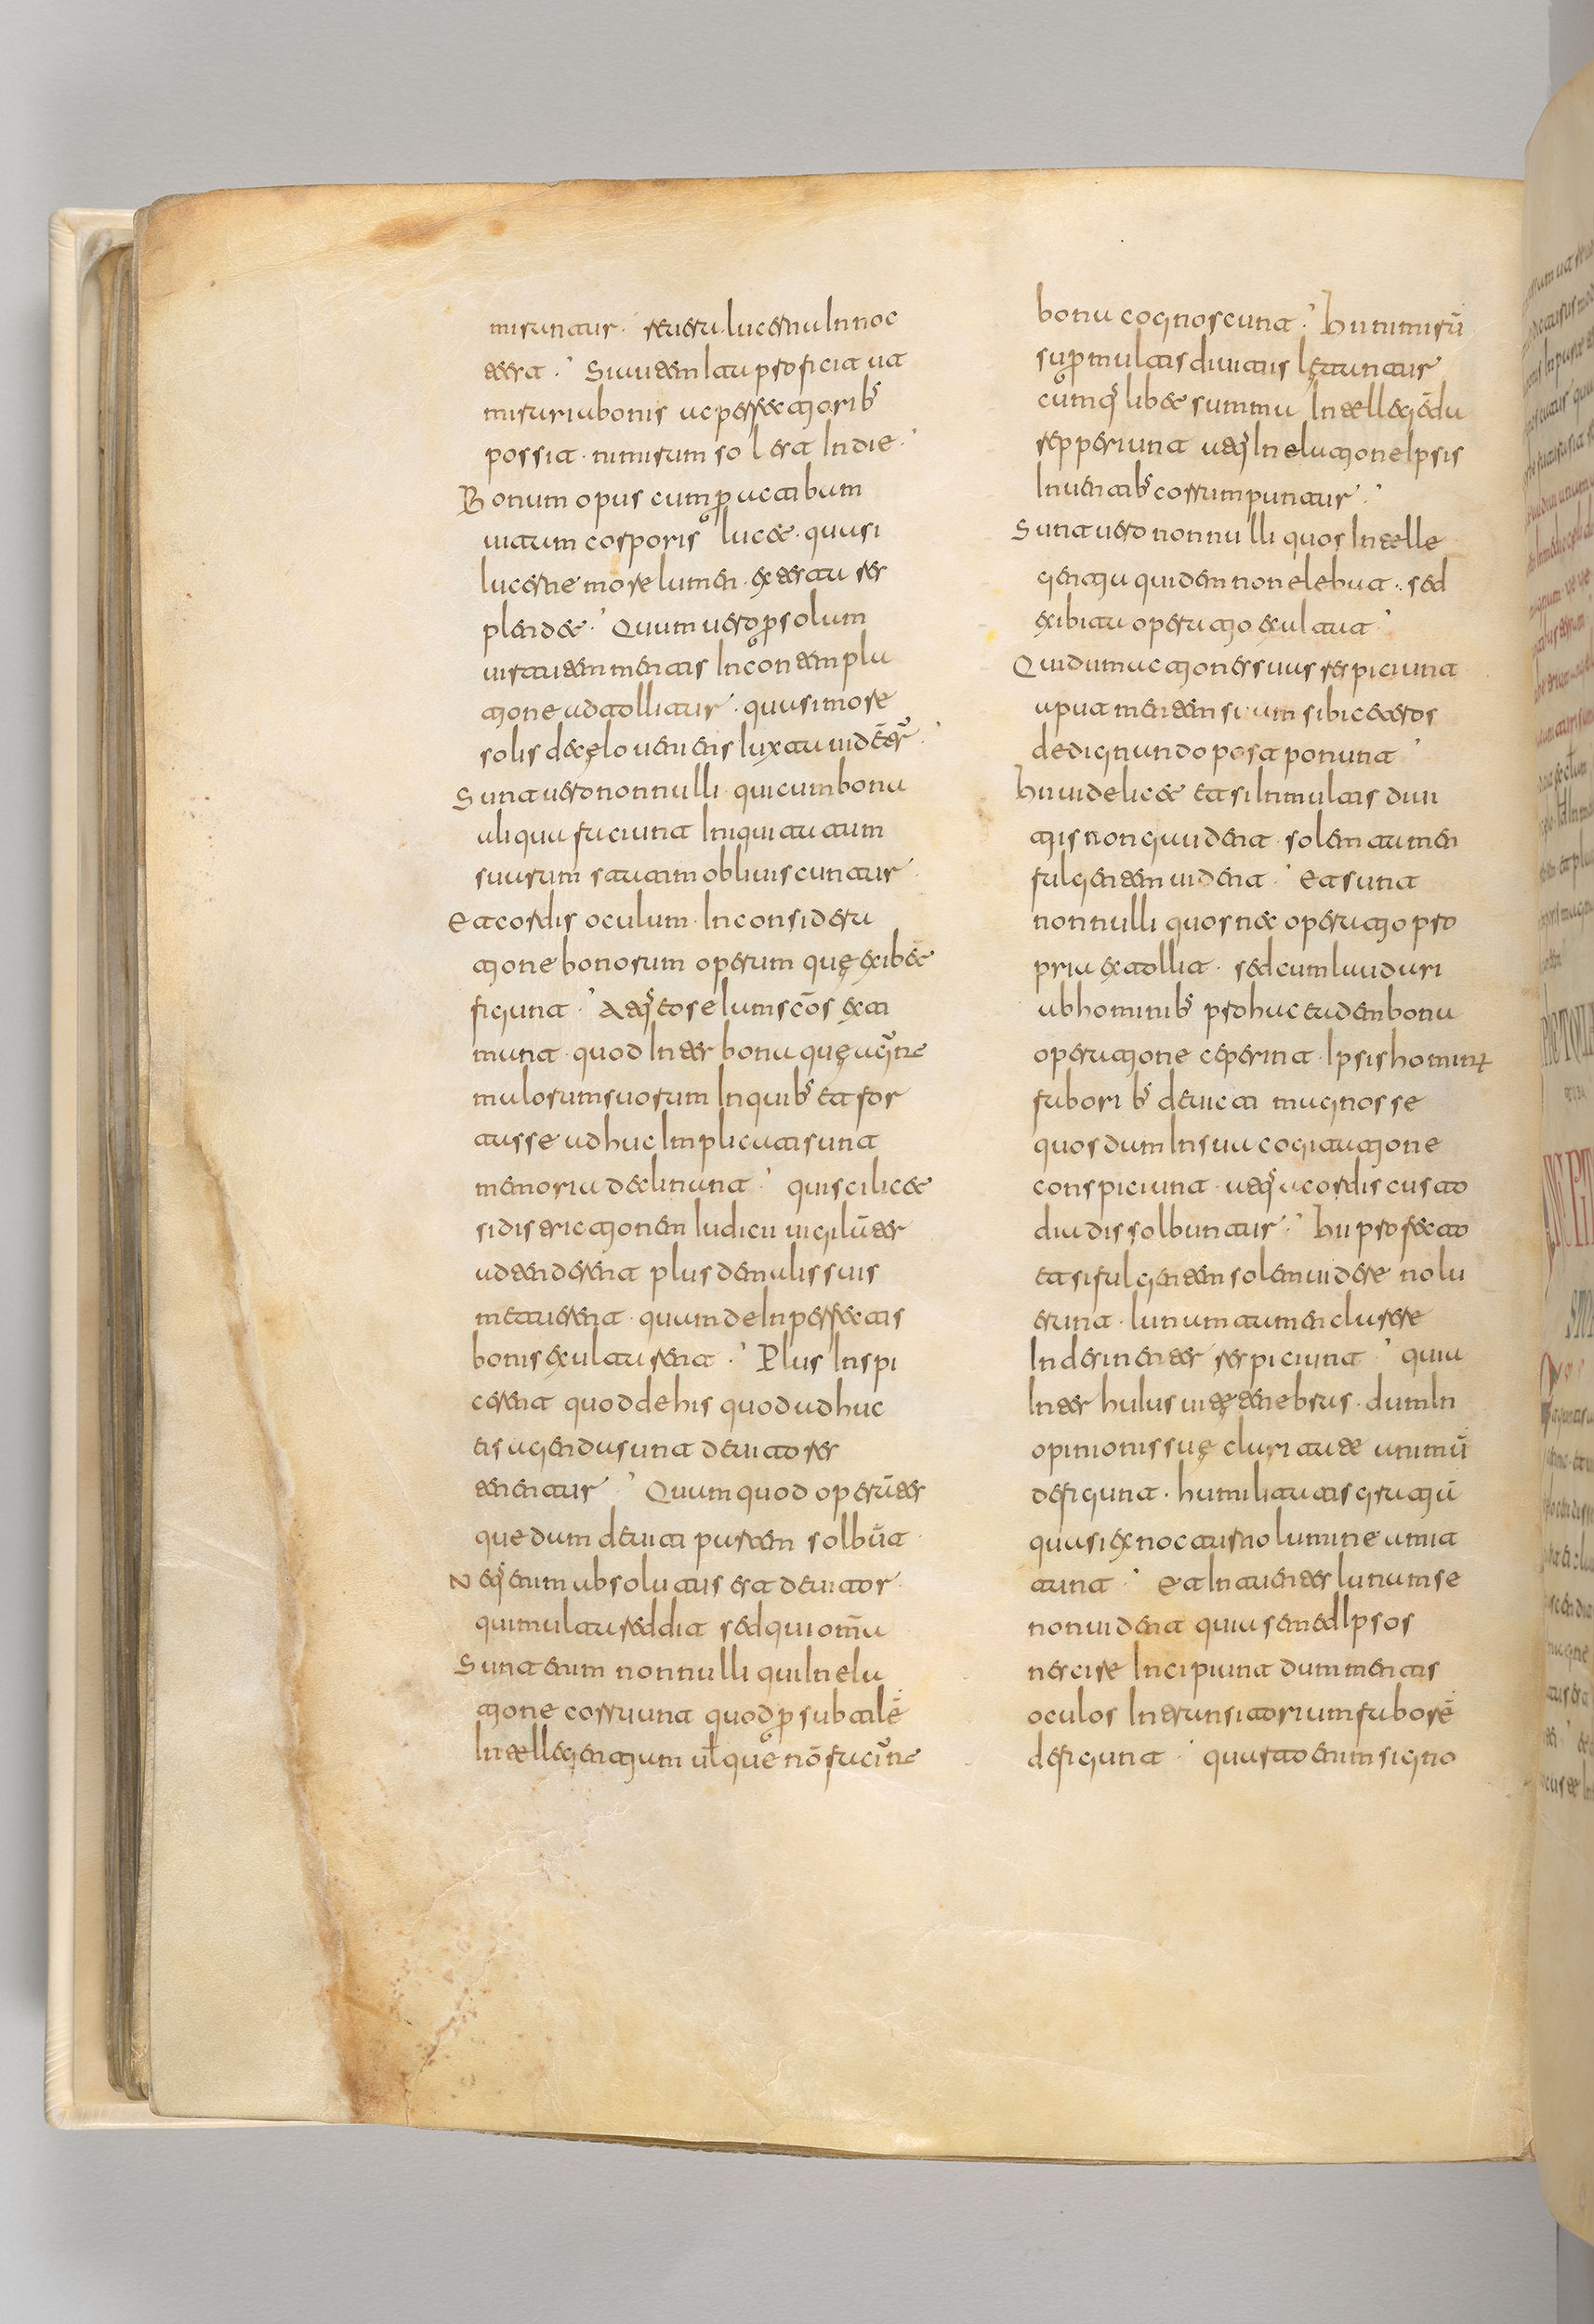 mirantur. reuera. lucerna In noc
te est. Si autem ita proficiat ut
mirari a bonis ac perfectiorib;
possit. nimirum sol est In die.
Bonum opus cum p̱ actibam
uitam corporis lucet. quasi
lucerne more lumen. ex testa res
plendet. Quum uero p̱ solum
uirtutem mentis In contempla
tione adtollitur. quasi more
solis de cęlo ueniens lux ta uidētr̄.
Sunt uero nonnulli qui cum bona
aliqua faciunt Iniquitatum
suarum statim obliuiscuntur.
Et cordis oculum. In considera
tione bonorum operum quę exibēt
figunt. Atq; eo se Iam scōs exti
munt. quod Inter bona quę agūnt
malorum suorum In quib; et for
tasse adhuc Implicati sunt
memoria declinant. qui scilicet
si districtionem Iudicii uigilāter
adtenderent plus de malis suis
metuerent. quam de Inperfectis
bonis exultarent. Plus Inspi
cerent quod de his quod adhuc
eis agenda sunt deuitores
tenentur. Quum quod operāter
quedam deuiti partem solbūt.
Neq; enim absolutus est deuitor.
qui multa reddit sed qui omīa
Sunt enim nonnulli qui In ela
tione corruunt quod p̱ subtilē
Intellegentiam ul̄ que nō faciūnt
bona cognoscunt. hii nimirū
sup̱ multis diuitiis lętantur
cumq; libet summa Intellegēda
repperiunt atq; In elatione Ipsis
Inuentib; corrumpuntur.
Sunt uero nonnulli quos Intelle
gentia quidem non elebat. sed
exibita operatio exultat.
Qui dum actiones suas respiciunt
aput mentem suam sibi ceteros
dedignando postponunt
hii uidelicet et si In multis diui
tiis non gaudent. solem tamen
fulgentem uident. Et sunt
nonnulli quos nec operatio pro
pria extollit. sed cum laudari
ab hominib; pro hac eadem bona
operatione ceperint. Ipsis hominū
fabori b; deuicti magnos se
quosdam In sua cogitatione
conspiciunt. atq; a cordis custo
dia dissolbuntur. hii profecto
et si fulgentem solem uidere nolu
erunt. lunam tamen clarere
Inderinenter respiciunt. quia
Inter huius uitę tenebras. dum In
opinionis suę claritate animū
defigunt. humilitatis gratiā
quasi ex nocturno lumine amit
tunt. Et Intuenter lunam se
non uident quia semed Ipsos
nescire Incipiunt dum mentis
oculos In transitorium faborē
defigunt. quarto enim signo